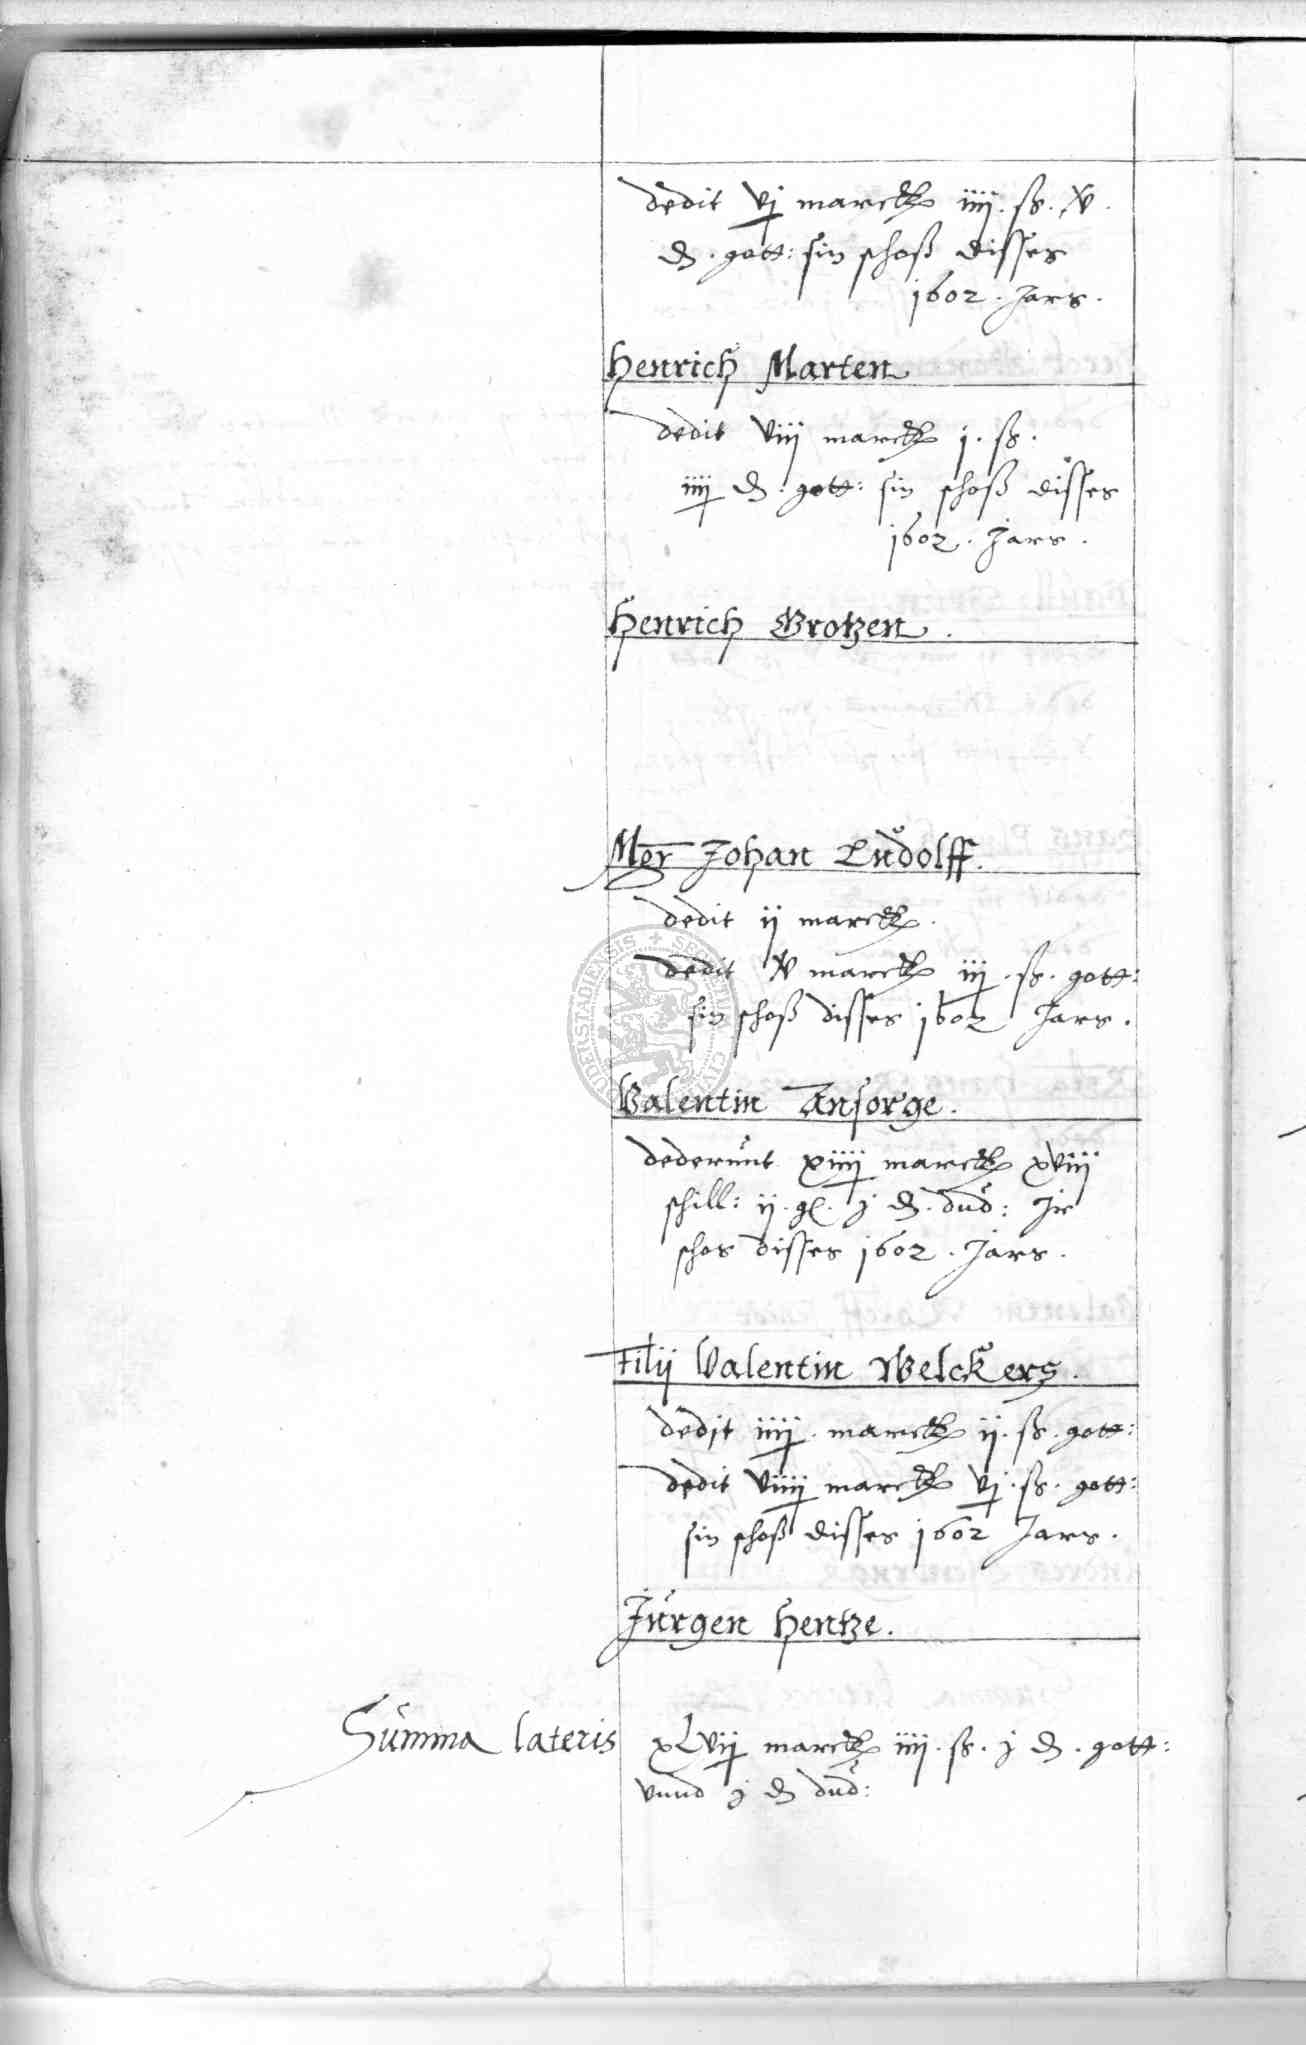 dedit vj marck iiij. ß. xv.
₰. gott: sin schoß disses
1602. Jars.
Henrich Marten
dedit viij marck j. ß.
iiij ₰. gott: sin schoß disses
1602. Jars.
Henrich Grotzen.
Mgr Johan Ludolff.
dedit ij marck.
dedit xv marck iij. ß. gott:
sin schoß disses 1602 Jars.
Valentin Ansorge.
dederunt xiiij marck xviij
schill: ij. gl. j ₰. dud: Jr
schos disses 1602. Jars.
Filij Valentin Welckers.
dedit iiij. marck ij. ß. gott:
dedit viiij marck vj. ß. gott:
sin schoß disses 1602 Jars.
Jurgen Hentze.
Summa lateris xLvij marck iiij. ß. j ₰. gott:
vnnd j ₰ dud: